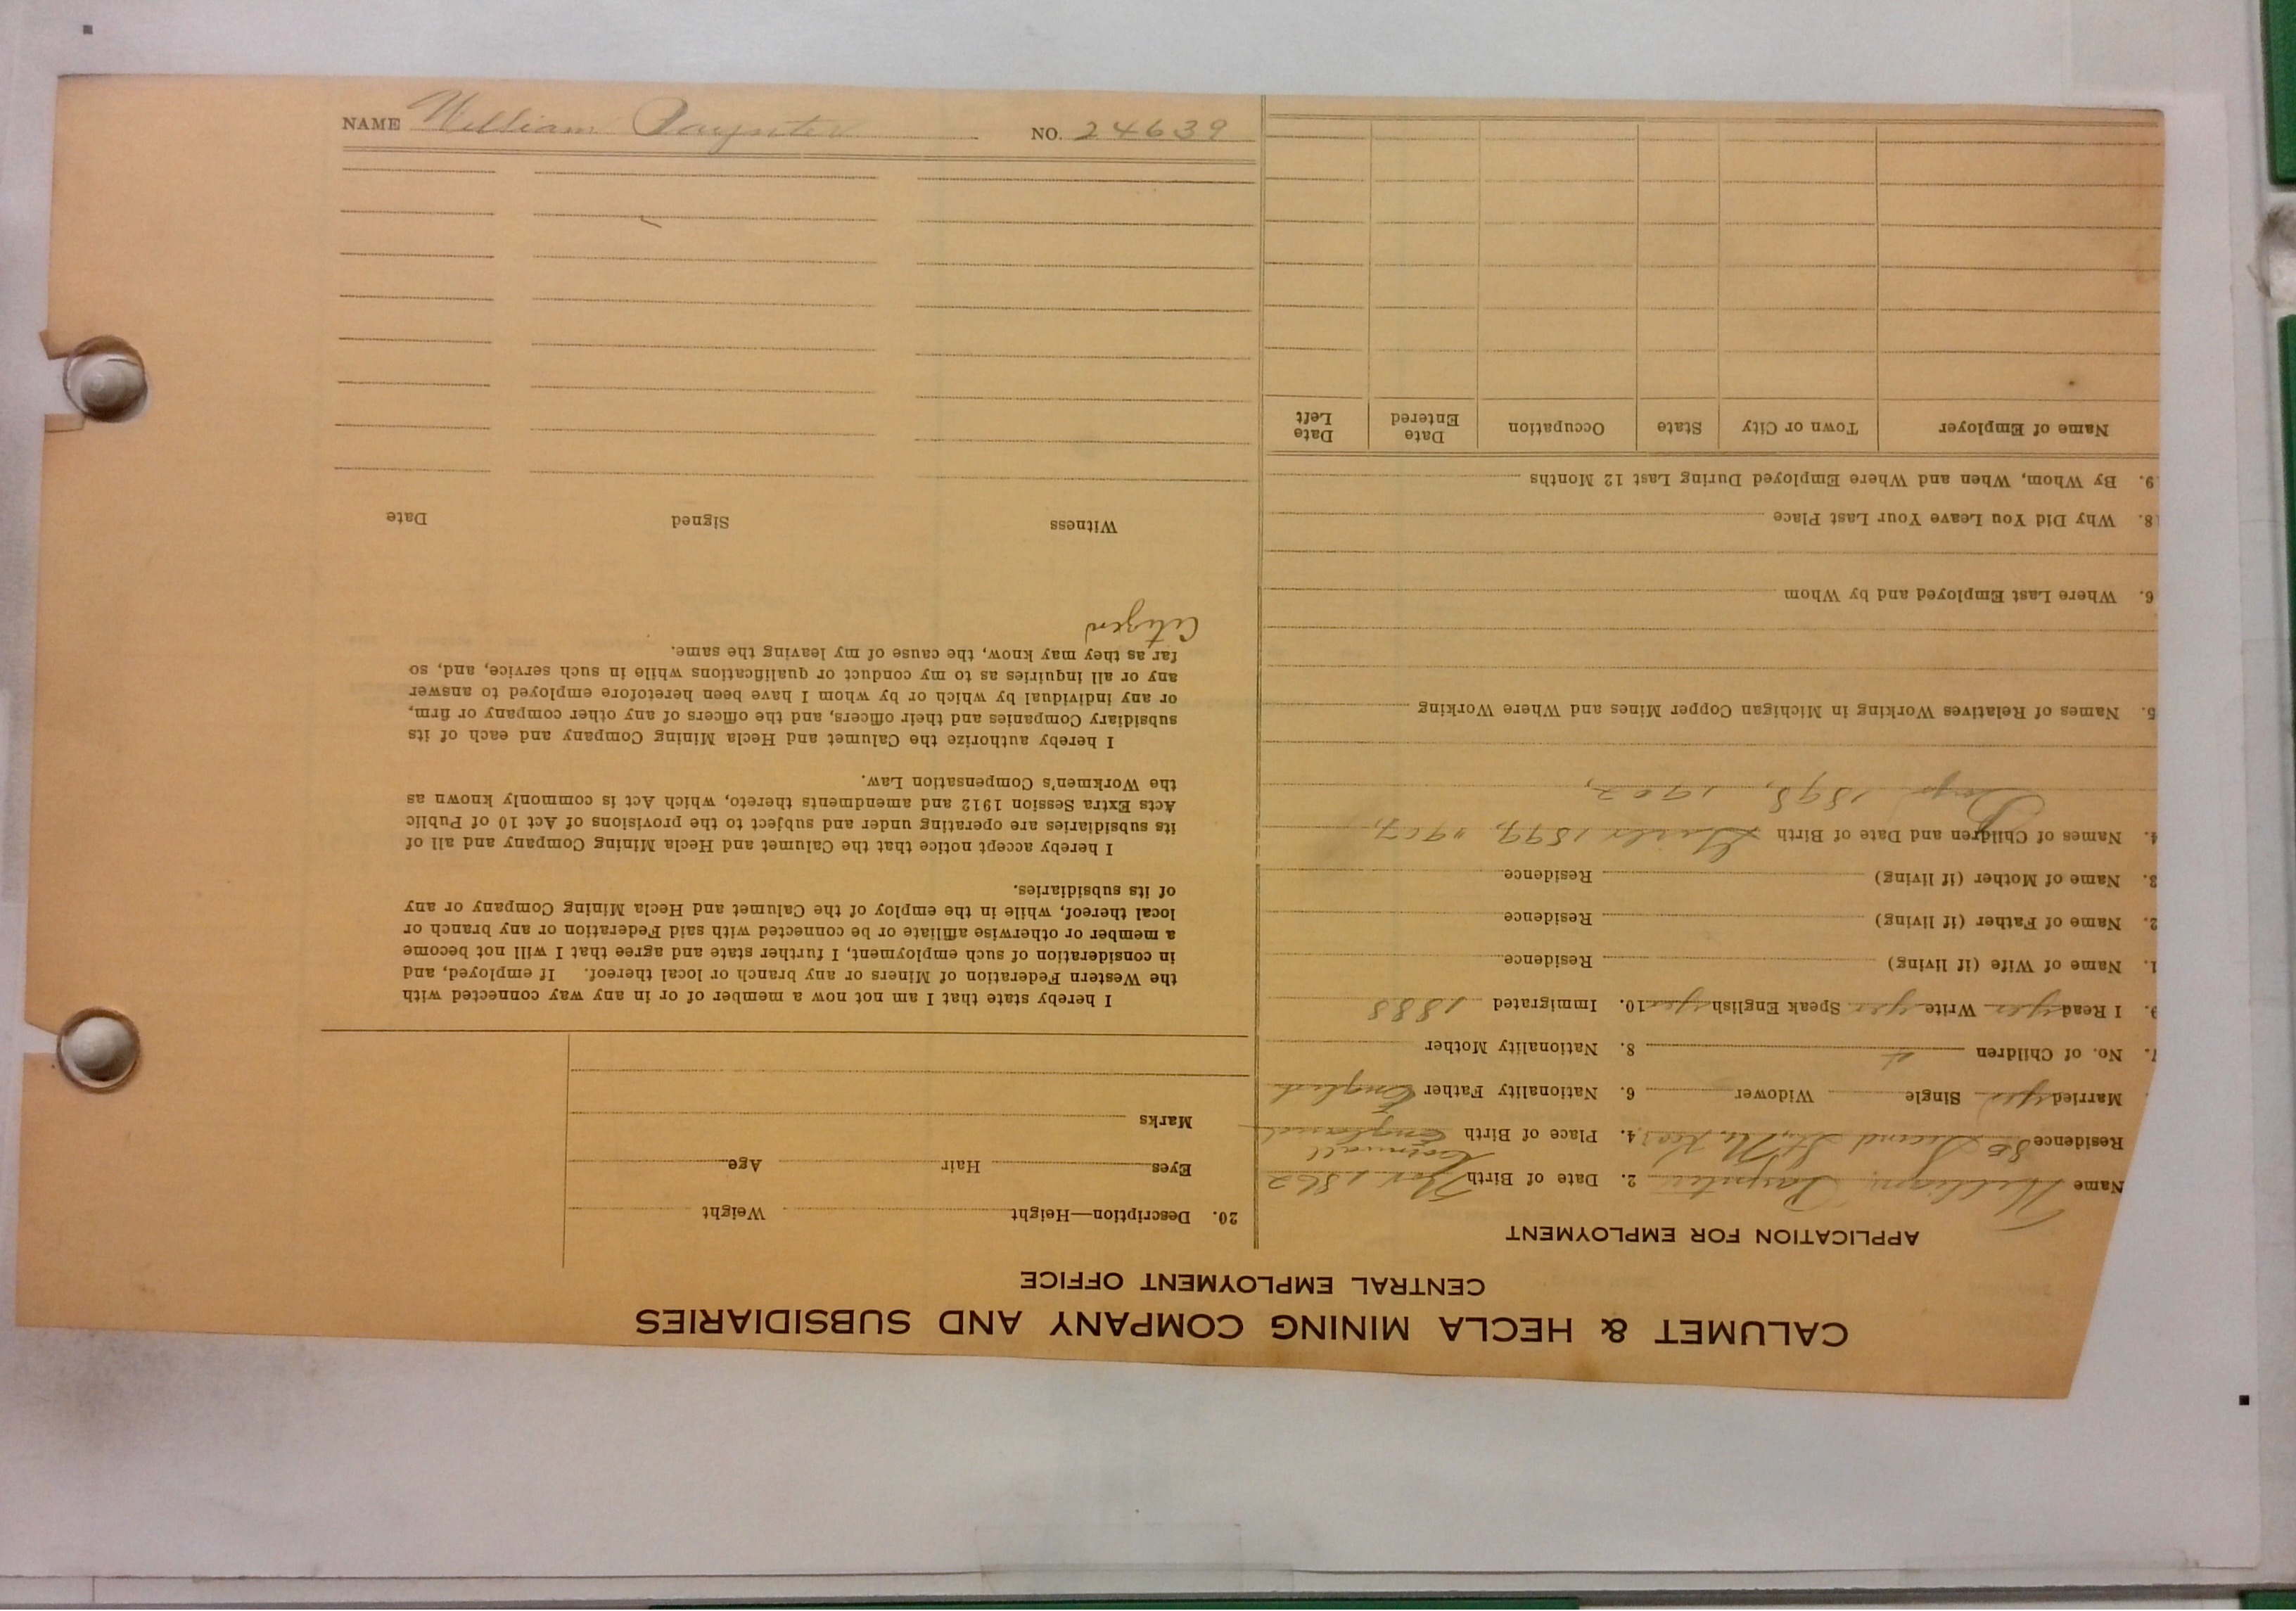 NAME William Paynter NO. 24639
CALUMET & HECLA MINING COMPANY AND SUBSIDIARIES
CENTRAL EMPLOYMENT OFFICE
APPLICATION FOR EMPLOYMENT
Name William Paynter 2. Date of Birth Nov. 1862
Cornwall
Residence 80 Second St. 4. Place of Birth England
Married yes Single Widower 6. Nationality Father English
No. of Children 4 8. Nationality Mother
9. I Read yes Write yes Speak English yes 10. Immigrated 1888
1. Name of Wife (if living) Residence
2. Name of Father (if living) Residence
3. Name of Mother (if living) Residence
4. Names of Children and Date of Birth Girls 1899, " 1907,
Boys 1898, 1902,
5. Names of Relatives Working in Michigan Copper Mines and Where Working
6. Where Last Employed and by Whom
8. Why Did You Leave Your Last Place
9. By Whom, When and Where Employed During Last 12 Months
Name of Employer Town or City State Occupation Date Entered Date Left
20. Description—Height Weight
Eyes Hair Age
Marks
I hereby state that I am not now a member of or in any way connected with
the Western Federation of Miners or any branch or local thereof. If employed, and
in consideration of such employment, I further state and agree that I will not become
a member or otherwise affiliate or be connected with said Federation or any branch or
local thereof, while in the employ of the Calumet and Hecla Mining Company or any
of its subsidiaries.
I hereby accept notice that the Calumet and Hecla Mining Company and all of
its subsidiaries are operating under and subject to the provisions of Act 10 of Public
Acts Extra Session 1912 and amendments thereto, which Act is commonly known as
the Workmen's Compensation Law.
I hereby authorize the Calumet and Hecla Mining Company and each of its
subsidiary Companies and their officers, and the officers of any other company or firm,
or any individual by which or by whom I have been heretofore employed to answer
any or all inquiries as to my conduct or qualifications while in such service, and, so
far as they may know, the cause of my leaving the same.
Citizen
Witness Signed Date